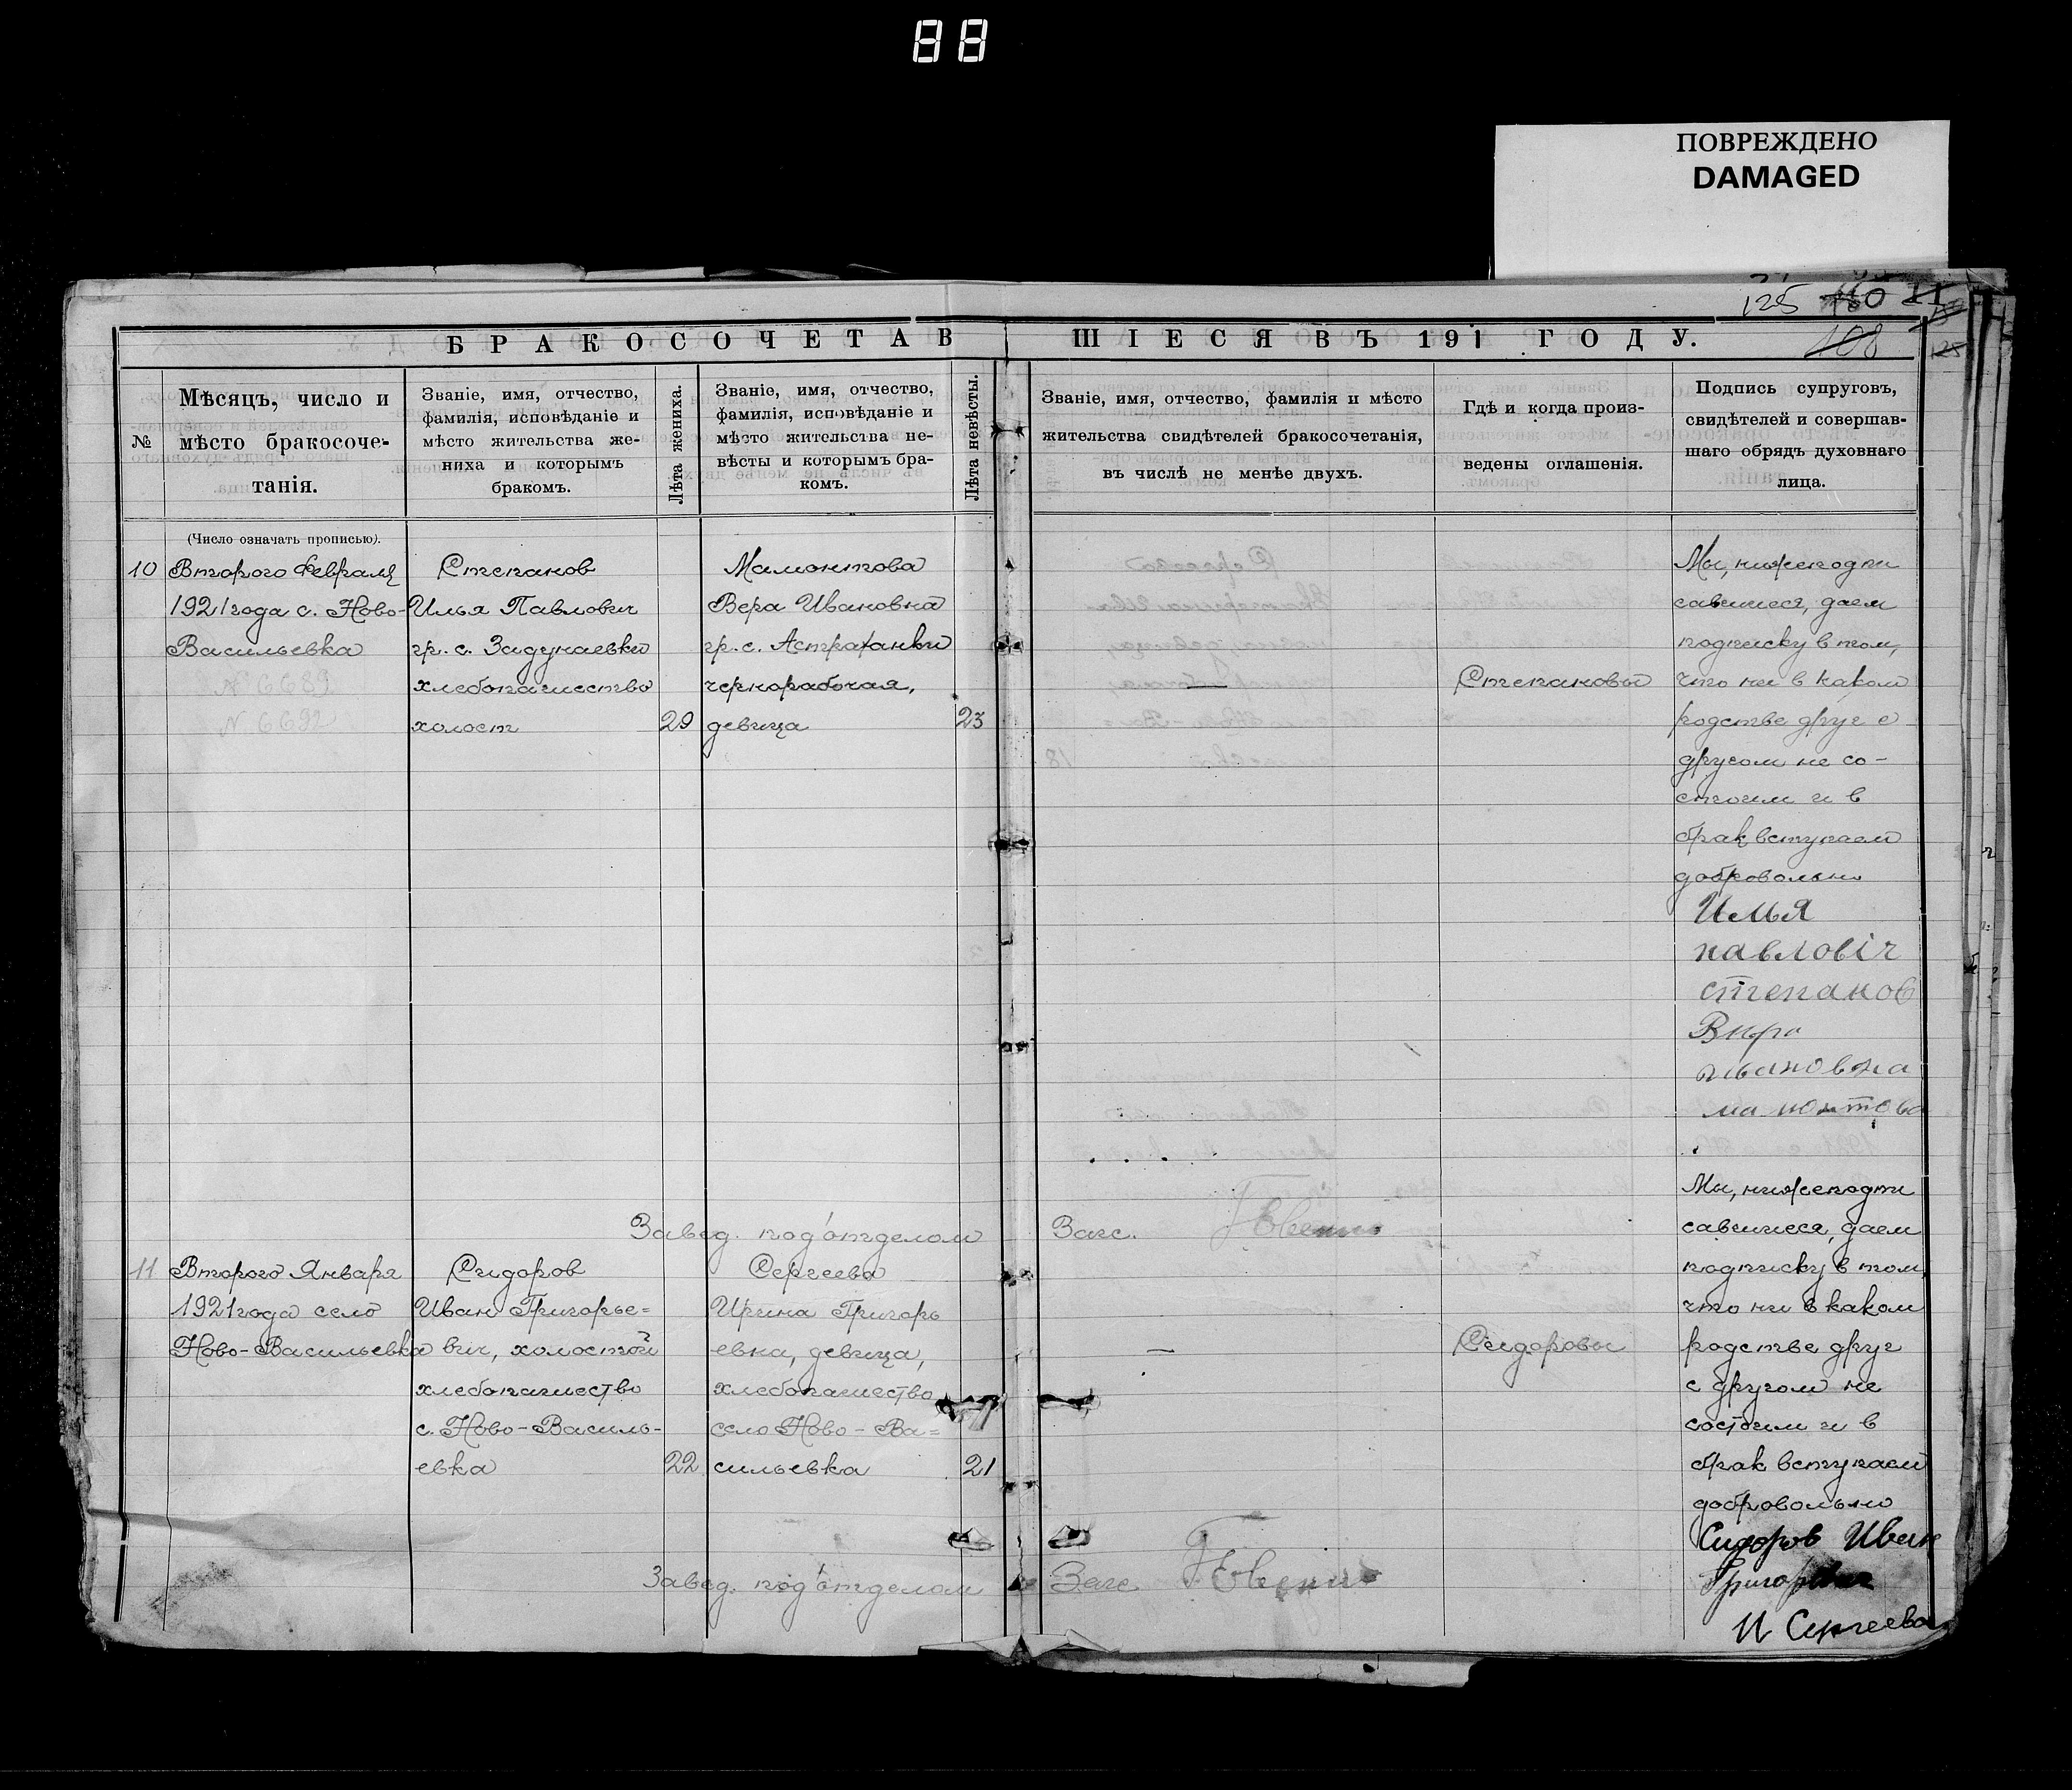 88
ПОВРЕЖДЕНО
DAMAGED
125
108
БРАКОСОЧЕТАВ
ШІЕСЯ ВЪ 191 ГОДУ.
№
Мѣсяцъ, число и
мѣсто бракосоче-
танія.
Званіе, имя, отчество,
фамилія, исповѣданіе и
мѣсто жительства же-
ниха и которымъ
бракомъ.
Лѣта жениха.
Званіе, имя, отчество,
фамилія, исповѣданіе и
мѣсто жительства не-
вѣсты и которымъ бра-
комъ.
Лѣта невѣсты.
Званіе, имя, отчество, фамилія и мѣсто
жительства свидѣтелей бракосочетанія,
въ числѣ не менѣе двухъ.
Гдѣ и когда произ-
ведены оглашенія.
Подпись супруговъ,
свидѣтелей и совершав-
шаго обрядъ духовнаго
лица.
(Число означать прописью).
10
Второго Февраля
1921 года с. Ново-
Васильевка
N 6689
N 6692
Степанов
Илья Павлович
гр. с. Задунаевки
хлебопашество
холост
29
Мамонтова
Вера Ивановна
гр. с. Астраханки
чернорабочая,
девица
23
—
Степановы
Мы, нижеподпи
савшиеся, даем
подписку в том,
что ни в каком
родстве друг с
другом не со-
стоим и в
брак вступаем
добровольно
Илья
павловіч
степанов
Вира
ивановна
мамонтова
Завед. под'отделом Загс.
11
Второго Января
1921 года село
Ново-Васильевка
Сидоров
Иван Григорье=
вич, холостой
хлебопашество
с. Ново-Василь-
евка
22
Сергеева
Ирина Григорь
евна, девица,
хлебопашество
село Ново-Ва=
сильевка
21
—
Сидоровы
Мы, нижеподпи
савшиеся, даем
подписку в том,
что ни в каком
родстве друг
с другом не
состоим и в
брак вступаем
добровольно
Сидоров Иван
Григорьевич
И Сергеева
Завед. под'отделом Загс